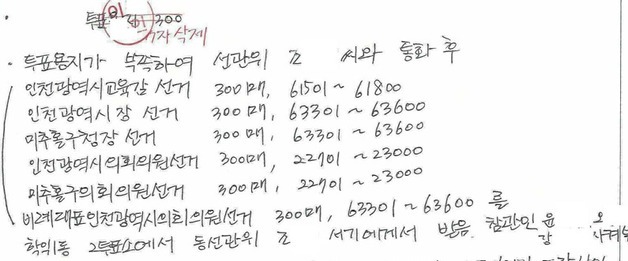 투표 300
1자 삭제
· 투표용지가 부족하여 선관위 조 씨와 통화 후
인천광역시교육감 선거 300매, 61501 ~ 61800
인천광역시장 선거 300매, 63301 ~ 63600
미추홀구청장 선거 300매, 63301 ~ 63600
인천광역시의회의원선거 300매, 22701 ~ 23000
미추홀구의회의원선거 300매, 22701 ~ 23000
비례대표인천광역시의회의원선거 300매, 63301 ~ 63600 를
학익1동 2투표소에서 동선관위 조 서기에게서 받음. 참관인 윤 오